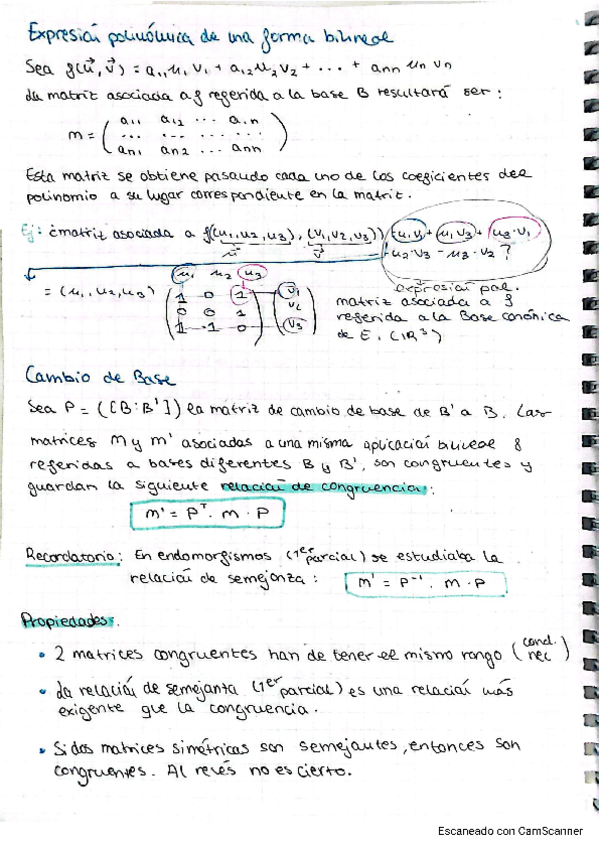 Expresión polinómica de una forma bilineal
Sea f(u⃗, v⃗) = a₁₁ u₁ v₁ + a₁₂ u₂ v₂ + ... + ann un vn
La matriz asociada a f referida a la base B resultará ser:
a₁₁ a₁₂ ... a₁n
m = ( ... ... ... ... )
an₁ an₂ ... ann
Esta matriz se obtiene pasando cada uno de los coeficientes del
polinomio a su lugar correspondiente en la matriz.
Ej: ¿matriz asociada a f((u₁,u₂,u₃), (v₁,v₂,v₃)) = u₁v₁ + u₁v₃ + u₃·v₁
u⃗ v⃗ + u₂·v₃ - u₃·v₂ ?
u₁ u₂ u₃ expresión pol.
= (u₁,u₂,u₃) ( 1 0 1 ) ( v₁ ) matriz asociada a f
0 0 1 v₂ referida a la Base canónica
1 -1 0 v₃ de E. (ℝ³)
Cambio de Base
Sea P = ([B:B']) la matriz de cambio de base de B' a B. Las
matrices M y m' asociadas a una misma aplicación bilineal f
referidas a bases diferentes B y B', son congruentes y
guardan la siguiente relación de congruencia:
m' = Pᵀ · m · P
Recordatorio: En endomorfismos (1er parcial) se estudiaba la
relación de semejanza: m' = P⁻¹ · m · P
Propiedades:
• 2 matrices congruentes han de tener el mismo rango (cond. nec)
• La relación de semejanta (1er parcial) es una relación más
exigente que la congruencia.
• Si dos matrices simétricas son semejantes, entonces son
congruentes. Al revés no es cierto.
Escaneado con CamScanner